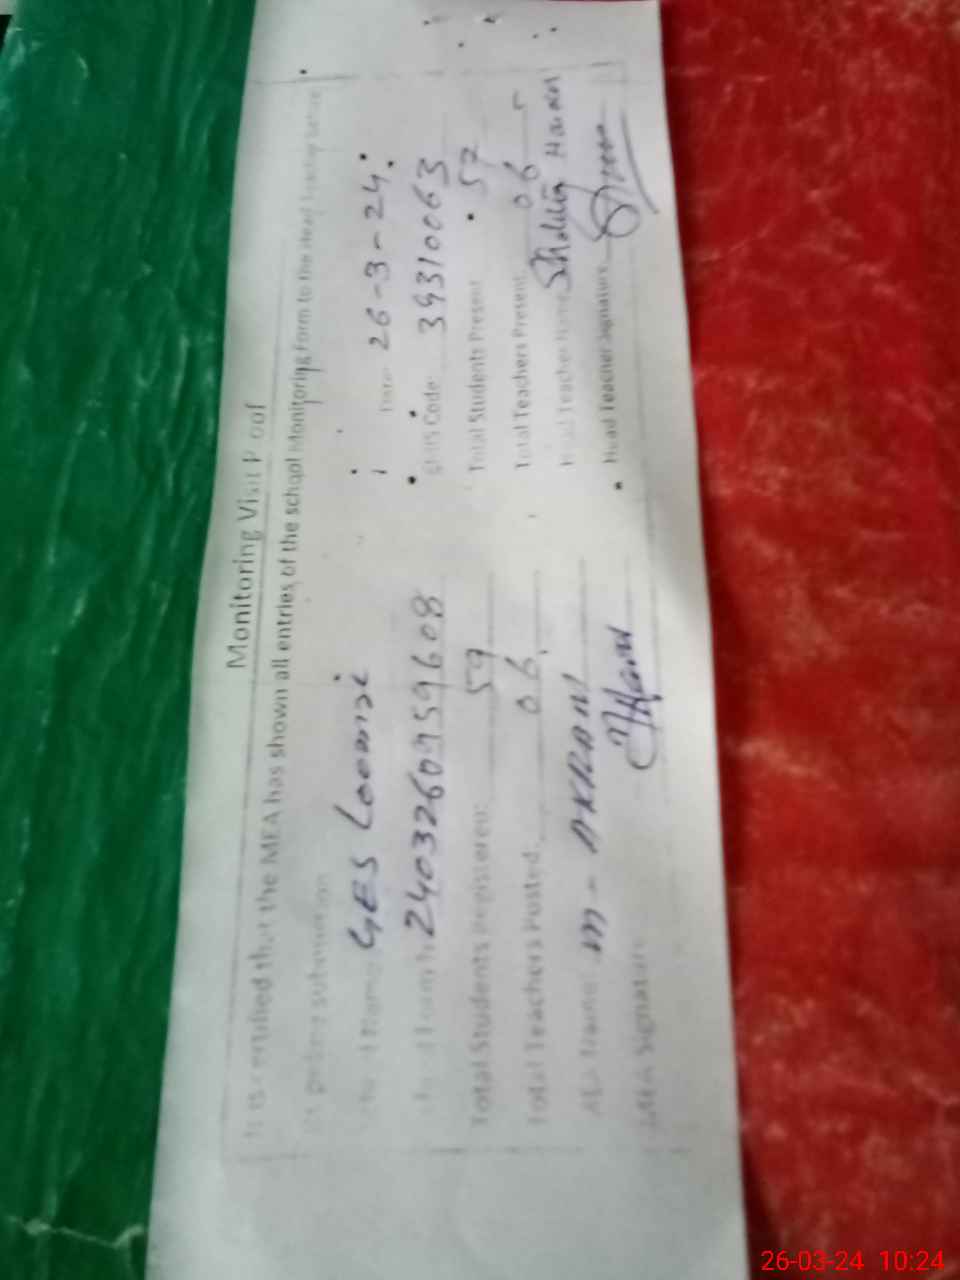 Monitoring Visit Proof
It is certified that the MEA has shown all entries of the school Monitoring Form to the Head Teacher before
its proper submission
School Name GES Date: 26-3-24
240326095 9608 EMIS Code: 39310063
Total Students Registered: 59 Total Students Present 57
Total Teachers Posted: 06 Total Teachers Present 06
MEA Name: M-AKRAM Head Teacher Name
MEA Signature Head Teacher Signature
26-03-24 10:24